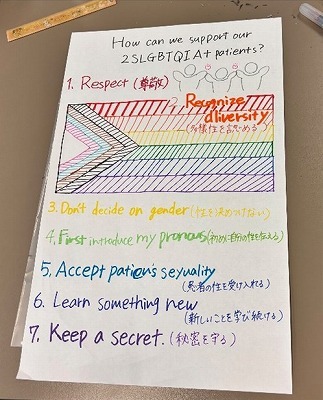 How can we support our
2SLGBTQIA+ patients?
1. Respect (尊敬)
2. Recognize
diversity
(多様性を認める)
3. Don't decide on gender (性を決めつけない)
4. First introduce my pronous (初めに自分の性を伝える)
5. Accept patien's seyuality
(患者の性を受け入れる)
6. Learn something new
(新しいことを学び続ける)
7. Keep a secret. (秘密を守る)